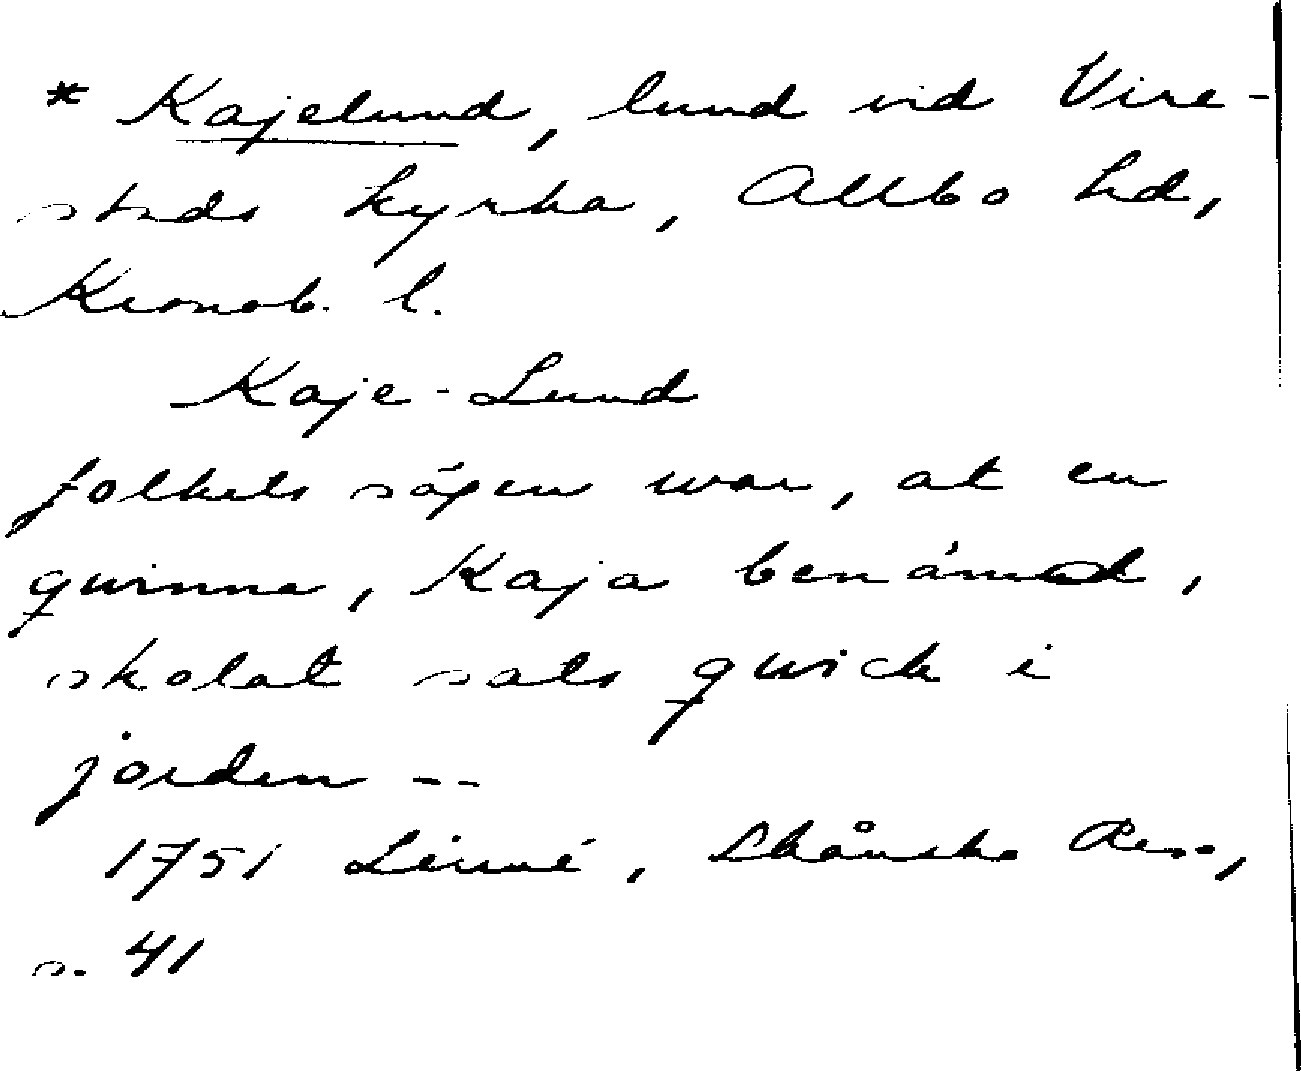 * Kajelund, lund vid Vire-
stads kyrka, Allbo hd,
Kronob. l.
Kaje-Lund
folkets sägen war, at en
qwinna, Kaja benämnd,
skolat sats qwick i
jorden --
1751 Linné, Skånska Resa,
s. 41